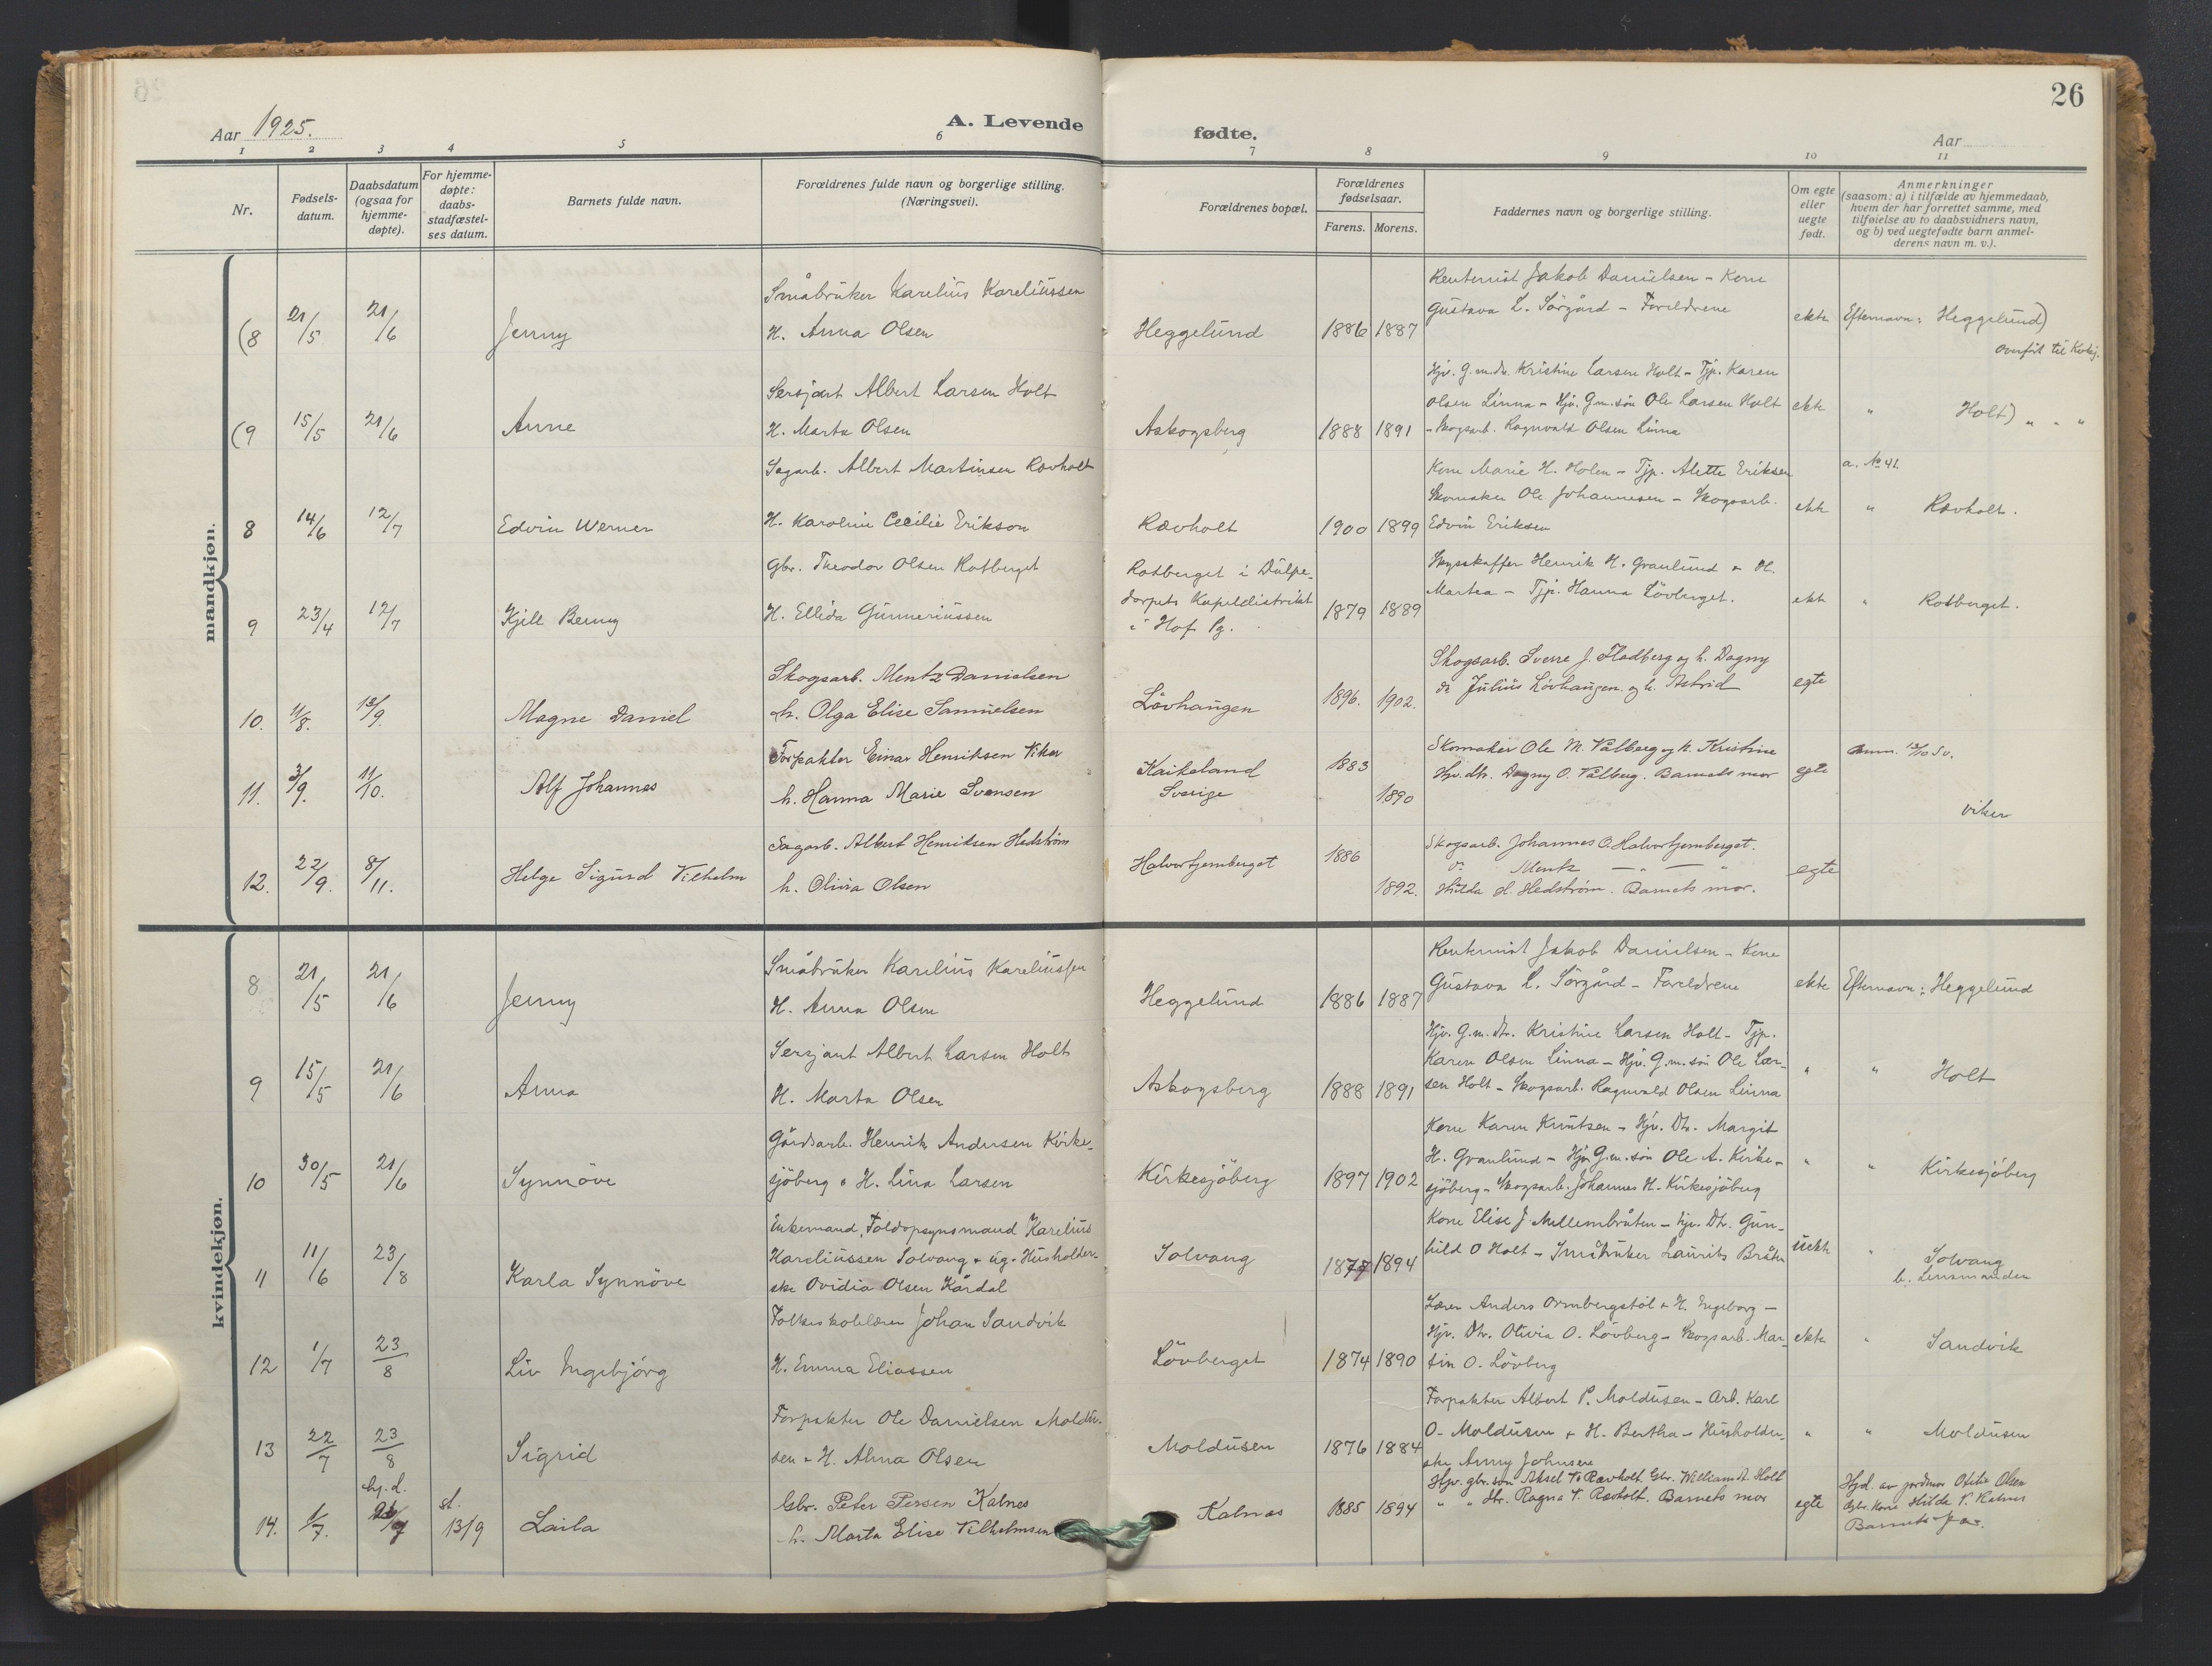 26
Aar 1925.
A. Levende
fødte.
Aar
1 2 3 4 5 6 7 8 9 10 11
Nr.
Fødsels-
datum.
Daabsdatum
(ogsaa for
hjemme-
døpte).
For hjemme-
døpte:
daabs-
stadfæstel-
ses datum.
Barnets fulde navn.
Forældrenes fulde navn og borgerlige stilling.
(Næringsvei).
Forældrenes bopæl.
Forældrenes
fødselsaar.
Farens. Morens.
Faddernes navn og borgerlige stilling.
Om egte
eller
uegte
født.
Anmerkninger
(saasom: a) i tilfælde av hjemmedaab,
hvem der har forrettet samme, med
tilføielse av to daabsvidners navn,
og b) ved uegtefødte barn anmel-
derens navn m. v.).
mandkjøn.
(8 21/5 21/6 Jenny
Småbruker Karelius Kareliussen
H. Anna Olsen
Heggelund 1886 1887
Rentenist Jakob Danielsen - Kone
Gustava L. Sörgård - Foreldrene
ekte Efternavn: Heggelund)
Overført til Kvkj.
(9 15/5 21/6 Anne
Sersjant Albert Larsen Holt
H. Marta Olsen
Askogsberg 1888 1891
Hjv. G.m.dr. Kristine Larsen Holt - Tjp. Karen
Olsen Linna - Hjv. G.m.sön Ole Larsen Holt
- Skogsarb. Ragnvald Olsen Linna
ekte " Holt) " " "
8 14/6 12/7 Edvin Werner
Sagarb. Albert Martinsen Rovholt
H. Karoline Cecilie Erikson
Rævholt 1900 1899
Kone Marie H. Holen - Tjp. Alette Eriksen
Skomaker Ole Johannesen - Skogsarb.
Edvin Eriksen
ekte a. No 41.
" Rævholt.
9 23/4 12/7 Kjell Benny
Gbr. Theodor Olsen Rotberget
H. Ellida Gunneriussen
Rotberget i Dulpe-
torpets Kapeldistrikt
i Hof Pg.
1879 1889
Skysskaffer Henrik H. Granlund & H.
Martea - Tjp. Hanna Lövberget.
ekte " Rotberget.
10. 11/8. 13/9. Magne Daniel
Skogsarb. Mentz Danielsen
h. Olga Elise Samuelsen
Lövhaugen 1896. 1902.
Skogsarb. Sverre J. Fladberg og h. Dagny
do Julius Lövhaugen og h. Astrid
egte
11. 3/9. 11/10. Alf Johannes
Forpakter Einar Henriksen Viker
h. Hanna Marie Svensen
Kaikeland
Sverige
1883 1890
Skomaker Ole M. Vålberg og h. Kristine
Hjv. dtr. Dagny O. Vålberg. Barnets mor
egte
Anm. 13/10 Sv.
viker
12. 22/9. 8/11. Helge Sigurd Vilhelm
Sagarb. Albert Henriksen Hedström
h. Olivia Olsen
Halvortjernberget 1886 1892.
Skogsarb. Johannes O. Halvortjernberget.
Do Mentz — " — "
Hilda H. Hedström. Barnets mor.
egte
kvindekjøn.
8 21/5 21/6 Jenny
Småbruker Karelius Kareliussen
H. Anna Olsen
Heggelund 1886 1887
Rentenist Jakob Danielsen - Kone
Gustava L. Sörgård - Foreldrene
ekte Efternavn: Heggelund
9 15/5 21/6 Anna
Sersjant Albert Larsen Holt
H. Marta Olsen
Askogsberg 1888 1891
Hjv. G.m. dtr. Kristine Larsen Holt - Tjp.
Karen Olsen Linna - Hjv. G.m. sön Ole Lar-
sen Holt - Skogsarb. Ragnvald Olsen Linna
" " Holt
10 30/5 21/6 Synnöve
Gårdsarb. Henrik Andersen Kirke-
sjöberg & H. Lina Larsen
Kirkesjöberg 1897 1902
Kone Karen Knutsen - Hjv. Dtr. Margit
H. Granlund - Hjv. G.m. sön Ole A. Kirke-
sjöberg - Skogsarb. Johannes H. Kirkesjöberg
" " Kirkesjöberg
11 11/6 23/8 Karla Synnöve
Enkemand, Toldopsynsmand Karelius
Kareliussen Solvang & ug. Husholder-
ske Ovidia Olsen Kårdal
Solvang 1877 1894
Kone Elise J. Mellembråten - Hjv. Dtr. Gun-
hild O Holt - Småbruker Laurits Bråten
uekte " Solvang
b. Lensmanden
12 1/7 23/8 Liv Ingebjörg
Folkeskolelærer Johan Sandvik
H. Emma Eliassen
Lövberget 1874 1890
Lærer Anders Ormbergstöl & H. Ingeborg -
Hjv. Dtr. Olivia O. Lövberg - Skogsarb. Mar-
tin O. Lövberg
ekte " Sandvik
13 22/7 23/8 Sigrid
Forpakter Ole Danielsen Moldu-
sen & H. Alma Olsen
Moldusen 1876 1884
Forpakter Albert P. Moldusen - Arb. Karl
O. Moldusen & H. Bertha - Husholder-
ske Anny Johnsen
" " Moldusen
14. 1/7. hj. d. st. 13/9 Laila
Gbr. Peter Persen Kalnes
h. Marta Elise Vilhelmsen
Kalnæs 1885 1894
Hjv. gbr. sön Aksel T. Rævholt. Gbr. William A. Holt
" " dtr. Ragna T. Rævholt. Barnets mor
egte
Hjd. av jordmor Otilie Olsen
Gbr. Kone Hilda P. Kalnes
Barnets far.